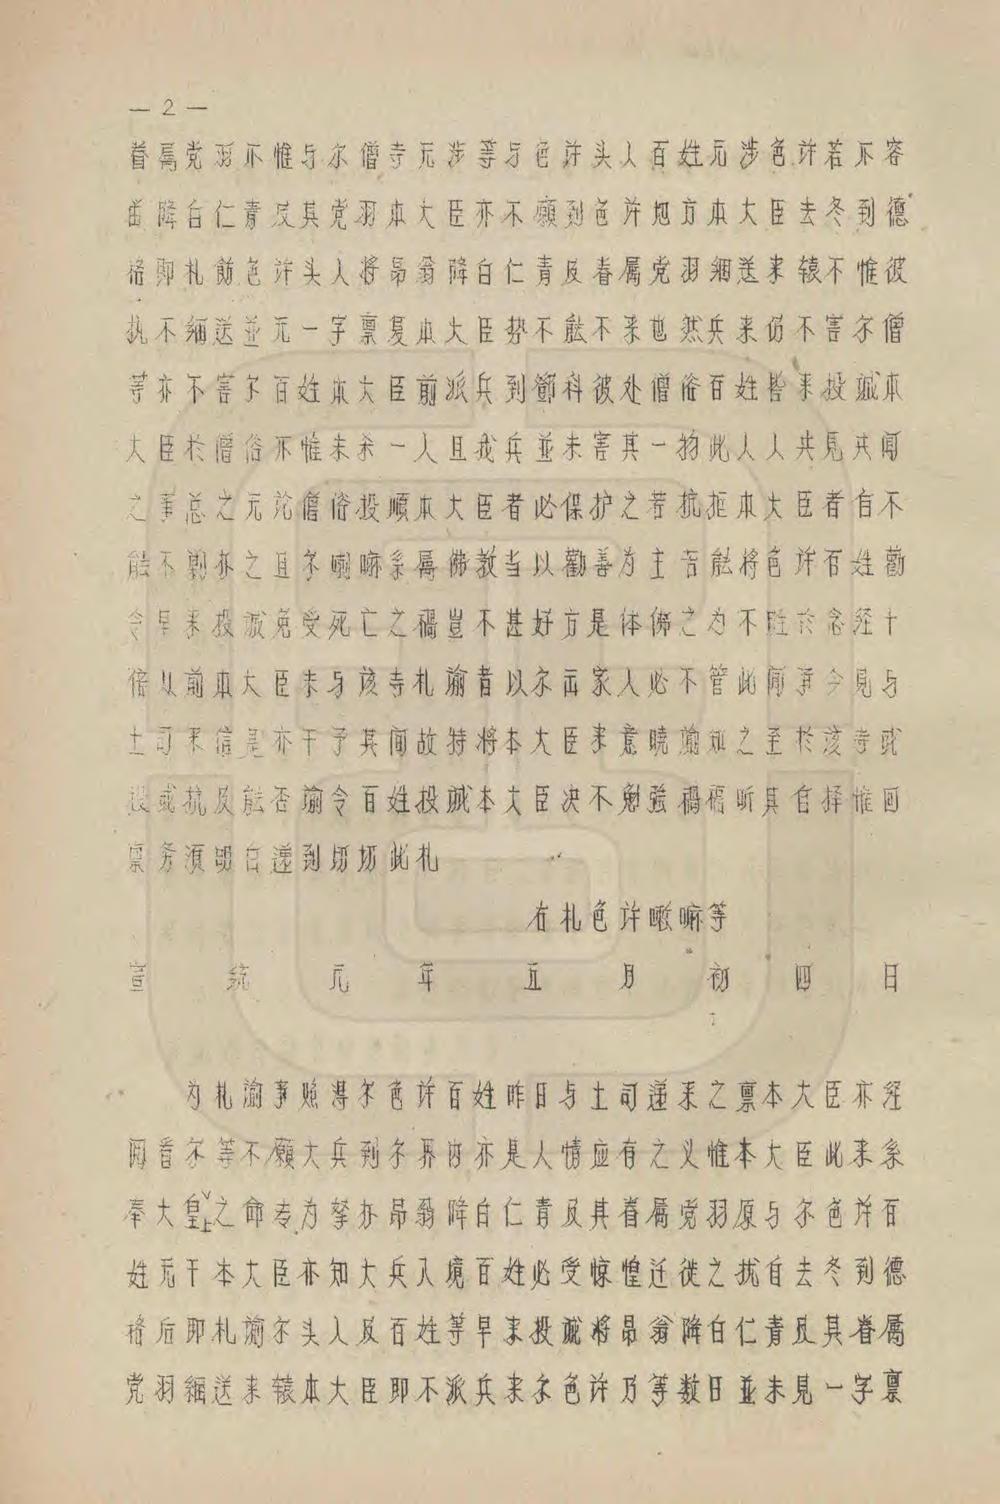 —2—
眷属党羽不惟与尔僧寺无涉等与色许头人百姓无涉色许若不容
留降白仁青及其党羽本大臣亦不願到色许地方本大臣去冬到德
格即札飭色许头人将昂翁降白仁青及眷属党羽綑送来辕不惟彼
执不綑送並无一字禀复本大臣势不能不来也然兵来仍不害尔僧
等亦不害尔百姓本大臣前派兵到鄧科彼处僧俗百姓皆来投诚本
大臣於僧俗不惟未杀一人且我兵並未害其一物此人人共見共闻
之事总之无论僧俗投順本大臣者必保护之若抗拒本大臣者自不
能不剿办之且尔喇嘛系属佛教当以勸善为主吾能将色许百姓勸
令早来投诚免受死亡之禍豈不甚好方是体佛之为不胜於念经十
倍从前本大臣未与该寺札諭者以尔出家人必不管此闲事今見与
土司来信是亦干予其间故特将本大臣来意晓諭知之至於该寺或
投或抗及能否諭令百姓投诚本大臣决不勉强禍福听其自择惟回
禀务须明白递到切切此札
右札色许喇嘛等
宣统元年五月初四日
为札諭事照得尔色许百姓昨日与土司递来之禀本大臣亦经
阅看尔等不願大兵到尔界内亦是人情应有之义惟本大臣此来系
奉大皇上之命专为拏办昂翁降白仁青及其眷属党羽原与尔色许百
姓无干本大臣亦知大兵入境百姓必受惊惶迁徙之扰自去冬到德
格后即札諭尔头人及百姓等早来投诚将昂翁降白仁青及其眷属
党羽綑送来辕本大臣即不派兵来尔色许乃等数日並未見一字禀